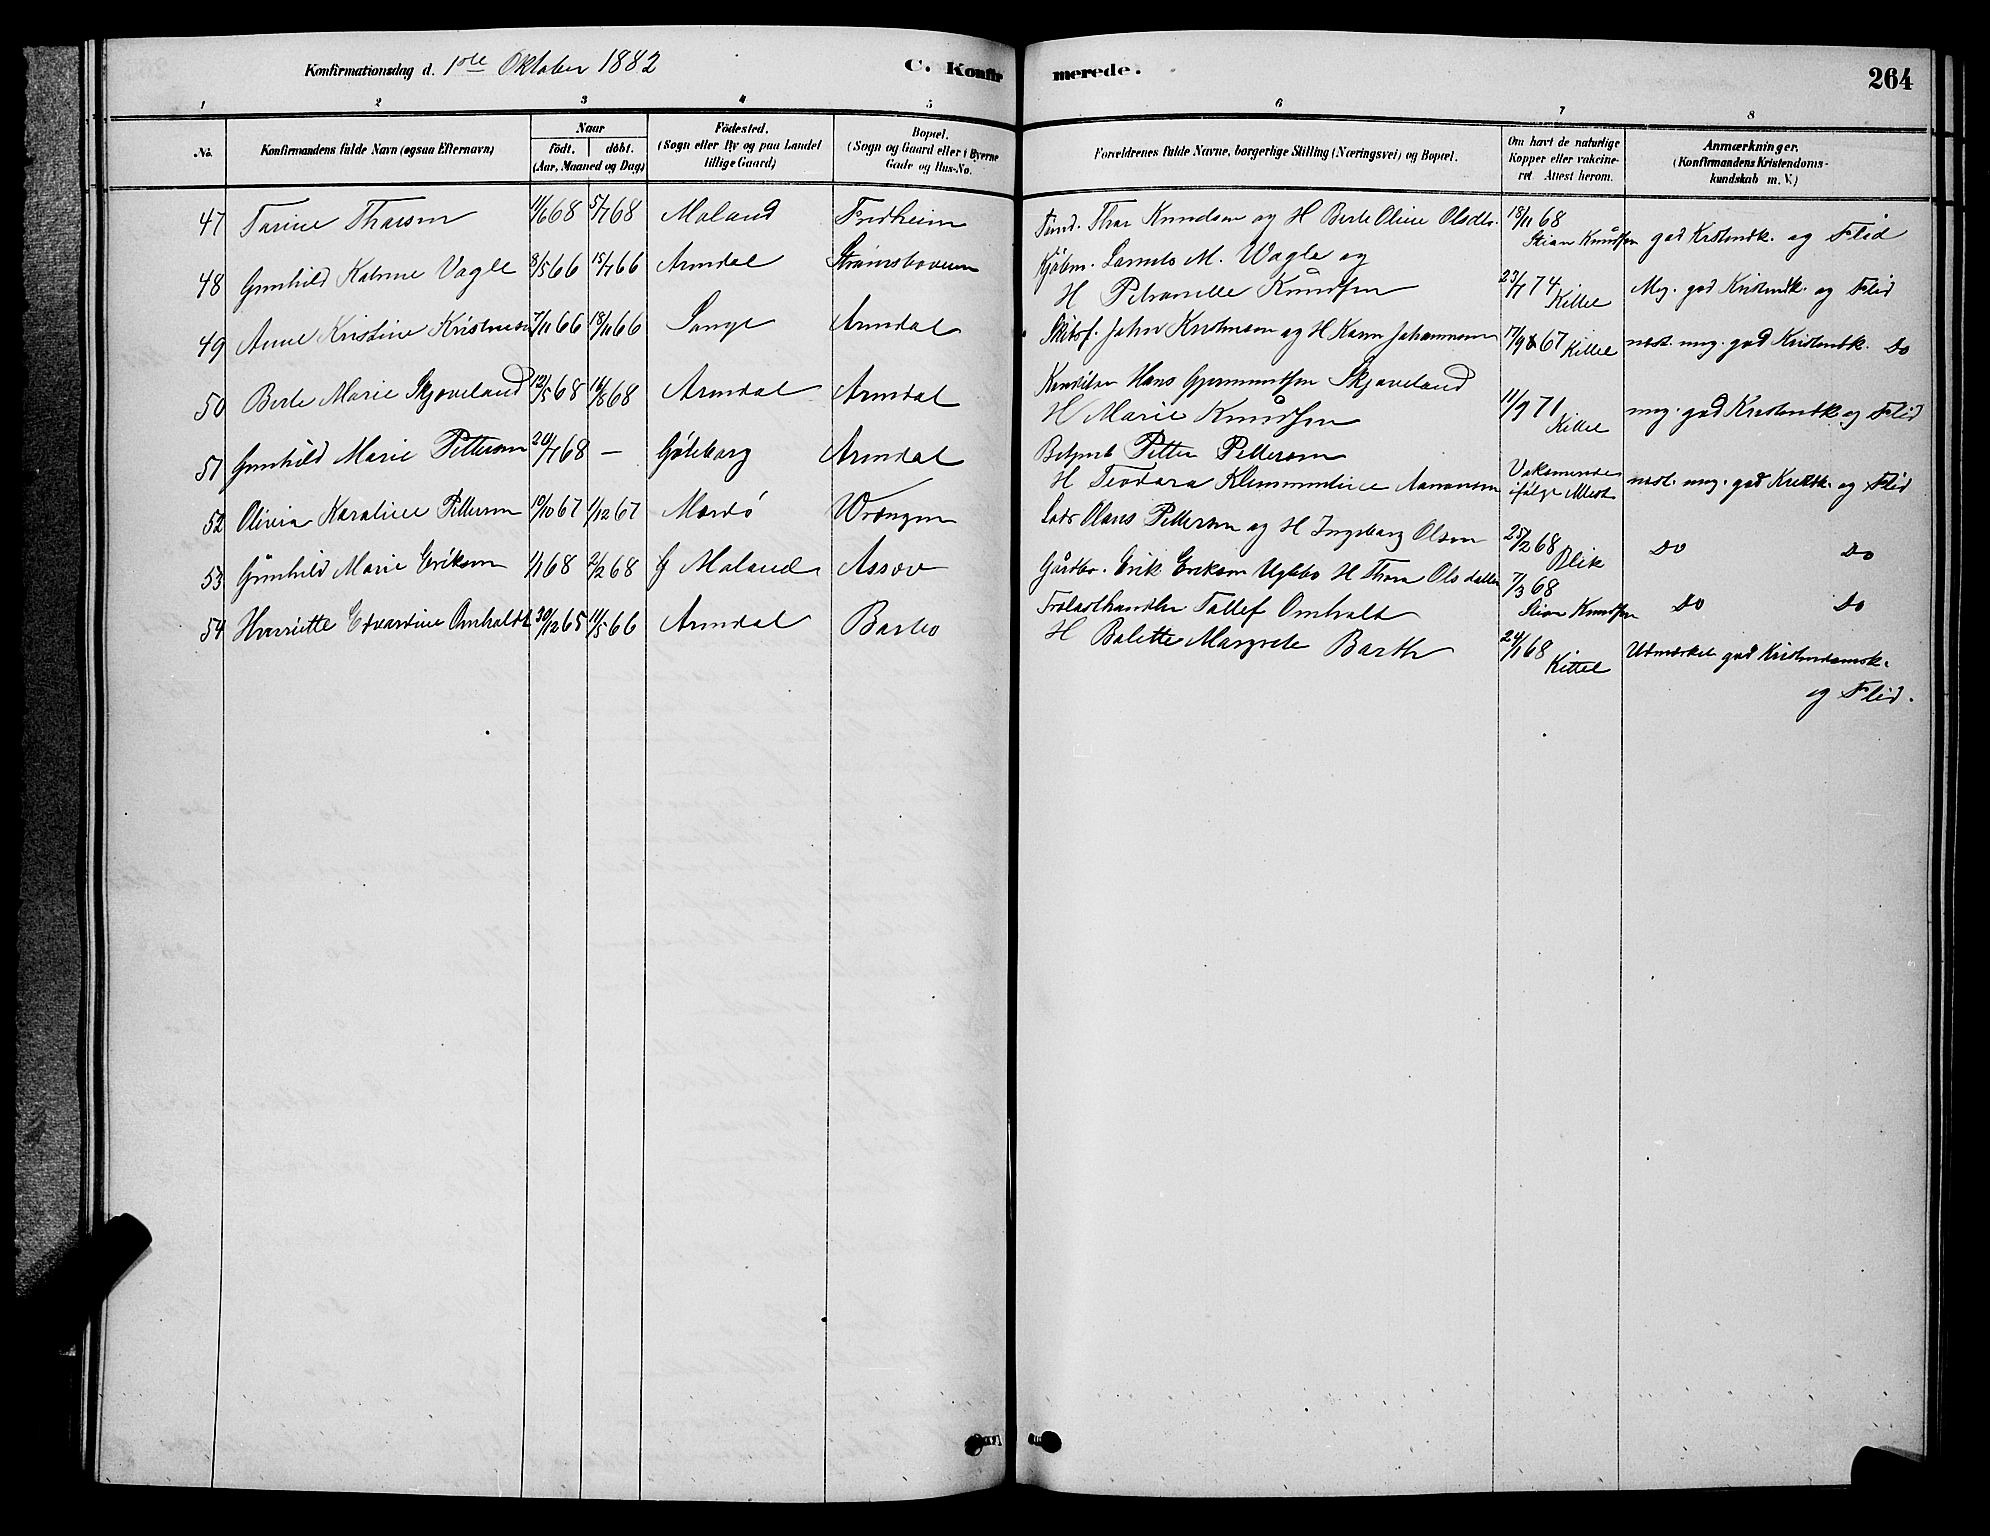 Konfirmationsdag d. 1ste Oktober 1882 C. Konfirmerede. 264
1 2 3 4 5 6 7 8
No. Konfirmandens fulde Navn (ogsaa Efternavn) Naar födt. döbt. (Aar, Maaned og Dag) Födested. (Sogn eller By og paa Landet tillige Gaard) Bopæl. (Sogn og Gaard eller i Byerne Gade og Hus-No. Forældrenes fulde Navne, borgerlige Stilling (Næringsvei) og Bopæl. Om havt de naturlige Kopper eller vakcineret. Attest herom. Anmærkninger. (Konfirmandens Kristendomskundskab m. V.)
47 Tarine Thorsen 11/6 68 5/7 68 Moland Fredheim Tømd. Thor Knudsen og H Berte Oline Olsdtr. 18/11 68 Stian Knudsen god Kristendk. og Flid
48 Gunhild Katrine Vagle 8/5 66 15/7 66 Arendal Strømsboveien Kjöbm. Laurits M. Wagle og
H Petronelle Knudsen 23/7 74 Kittel Meg. god Kristendk. og Flid
49 Anne Kristine Kristensen 7/11 66 18/11 66 Songe Arendal Skibsf. John Kristensen og H Karen Johannesen 17/9 67 Kittel næst. meg. god Kristendk. Do
50 Berte Marie Skjoveland 12/5 68 16/8 68 Arendal Arendal Konditor Hans Gjermundsen Skjoveland
H Marie Knudsen 11/9 71 Kittel meg. god Kristendk og Flid
51 Gunhild Marie Pettersen 20/7 68 — Göteborg Arendal Betjent Petter Pettersen
H Teodora Klemmentine Aanonsen Vaksineret ifølge Attest næst. meg. god Kristdk. og Flid
52 Olivia Karoline Pettersen 10/10 67 1/12 67 Merdö Wrengen Lods Olaus Pettersen og H Ingeborg Olsen 25/2 68 Blik Do Do
53 Gunhild Marie Eriksen 1/1 68 2/2 68 Ø Moland Assev Gårdbr. Erik Eriksen Ugkbo H Thone Olsdatter 7/3 68 Stian Knudsen Do Do
54 Harriette Edvardine Omholdt 30/12 65 11/5 66 Arendal Barbo Trælasthandler Tallef Omholt
H Bolette Margrete Barth 24/1 68 Kittel Udmærket god Kristendomsk.
og Flid.